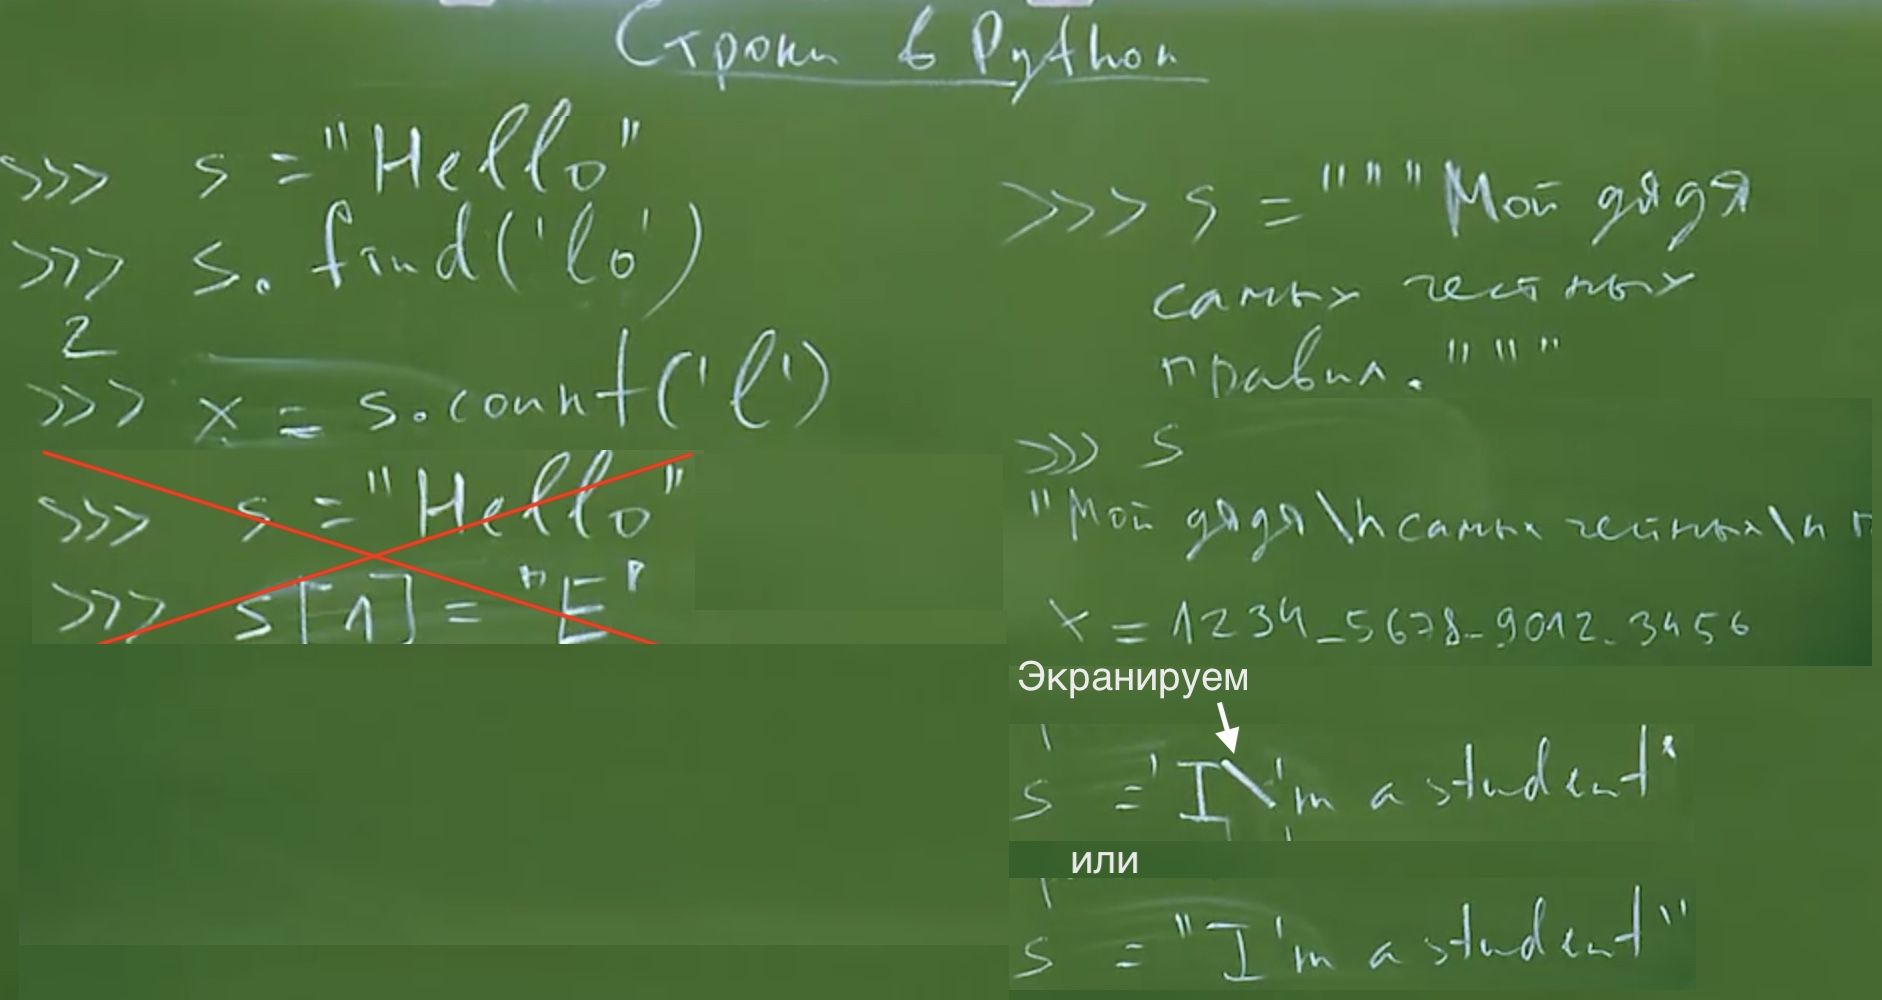 Строки в Python
>>> s = "Hello"
>>> s.find('lo')
2
>>> x = s.count('l')
>>> s = "Hello"
>>> s[1] = "E"
>>> s = """Мой дядя
самых честных
правил."""
>>> s
"Мой дядя\nсамых честных\n п
x = 1234_5678_9012_3456
Экранируем
s = 'I\'m a student'
или
s = "I'm a student"